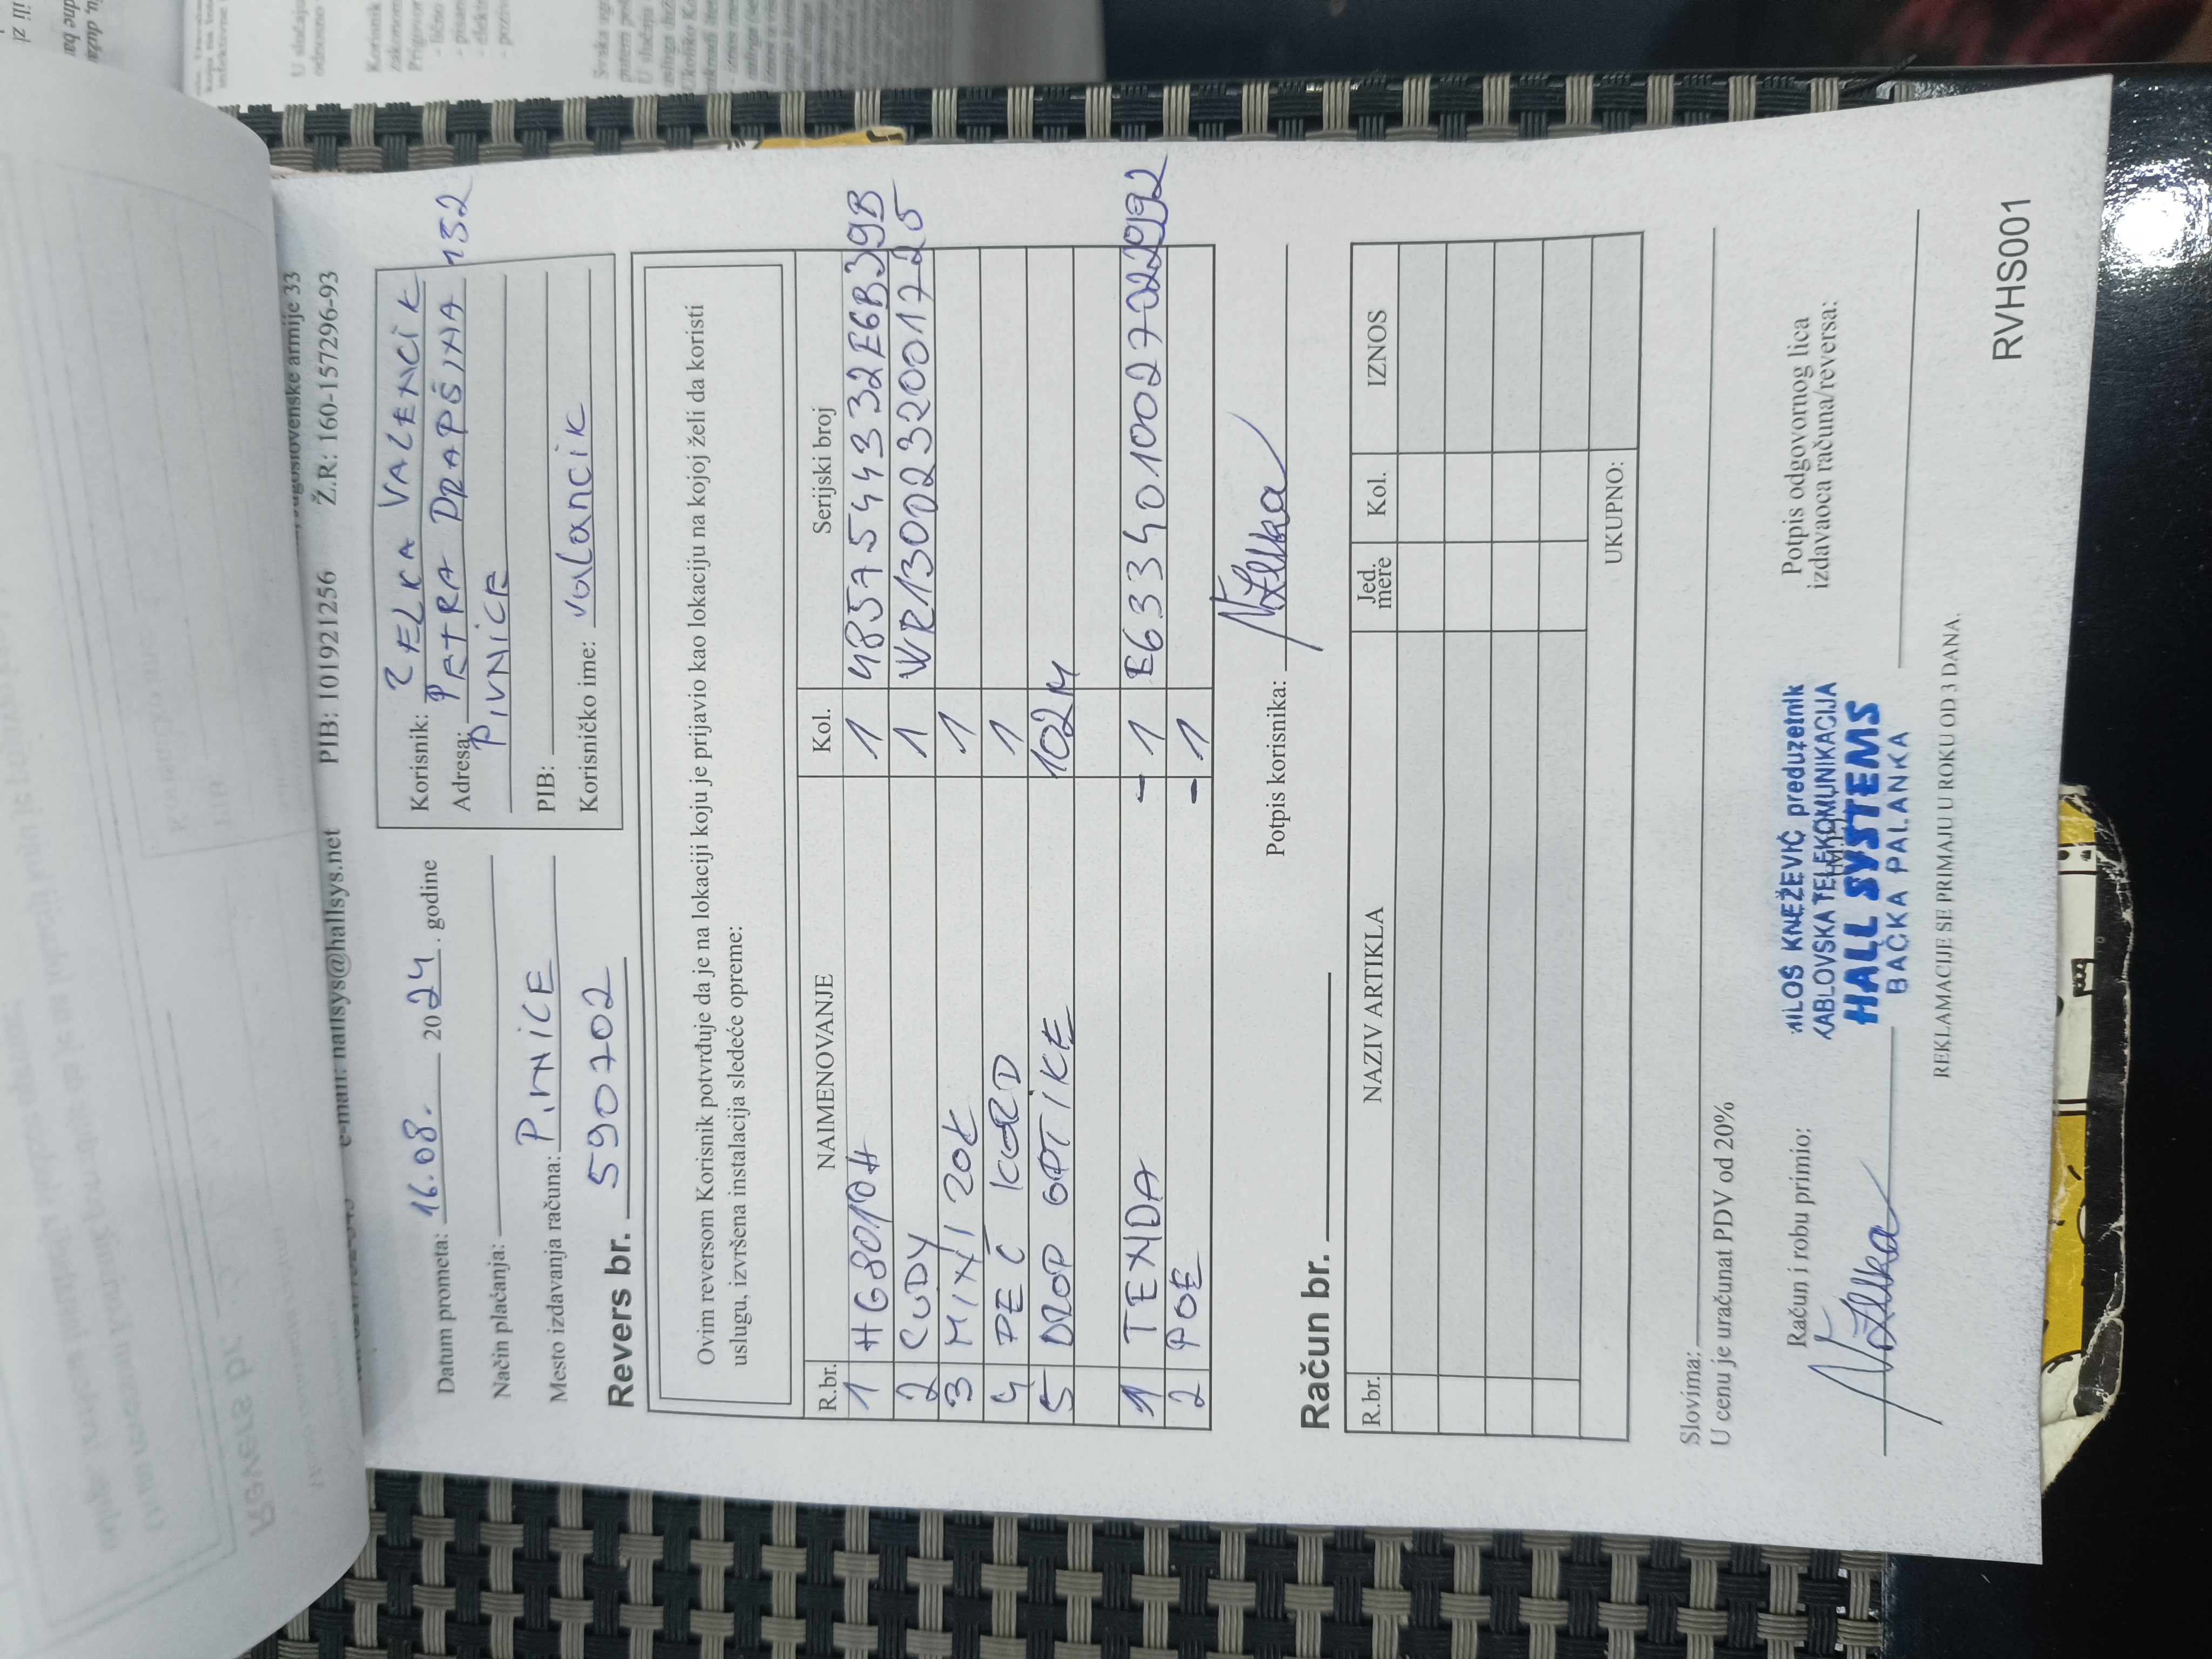 Jugoslovenske armije 33
e-mail: hallsys@hallsys.net PIB: 101921256 Ž.R: 160-1577296-93
Datum prometa: 16.08. 2024. godine
Način plaćanja:
Mesto izdavanja računa: PIVNICE
Revers br. 590702
Korisnik: ŽELKA VALENCIK
Adresa: PETRA DRAPŠINA 152
PIVNICE
PIB:
Korisničko ime: valancik
Ovim reversom Korisnik potvrđuje da je na lokaciji koju je prijavio kao lokaciju na kojoj želi da koristi
uslugu, izvršena instalacija sledeće opreme:
R.br. NAIMENOVANJE Kol. Serijski broj
1 HG8010H 1 4857544332E6B39B
2 CUDY 1 WR1300232001725
3 MINI ZOK 1
4 PEČ KORD 1
5 DROP OPTIKE 102M
1 TENDA - 1 E6334010027022992
2 POE - 1
Potpis korisnika:
Račun br.
R.br. NAZIV ARTIKLA Jed. mere Kol. IZNOS
UKUPNO:
Slovima:
U cenu je uračunat PDV od 20%
Račun i robu primio:
MILOŠ KNEŽEVIĆ preduzetnik
KABLOVSKA TELEKOMUNIKACIJA
HALL SYSTEMS
BAČKA PALANKA
Potpis odgovornog lica
izdavaoca računa/reversa:
REKLAMACIJE SE PRIMAJU U ROKU OD 3 DANA.
RVHS001